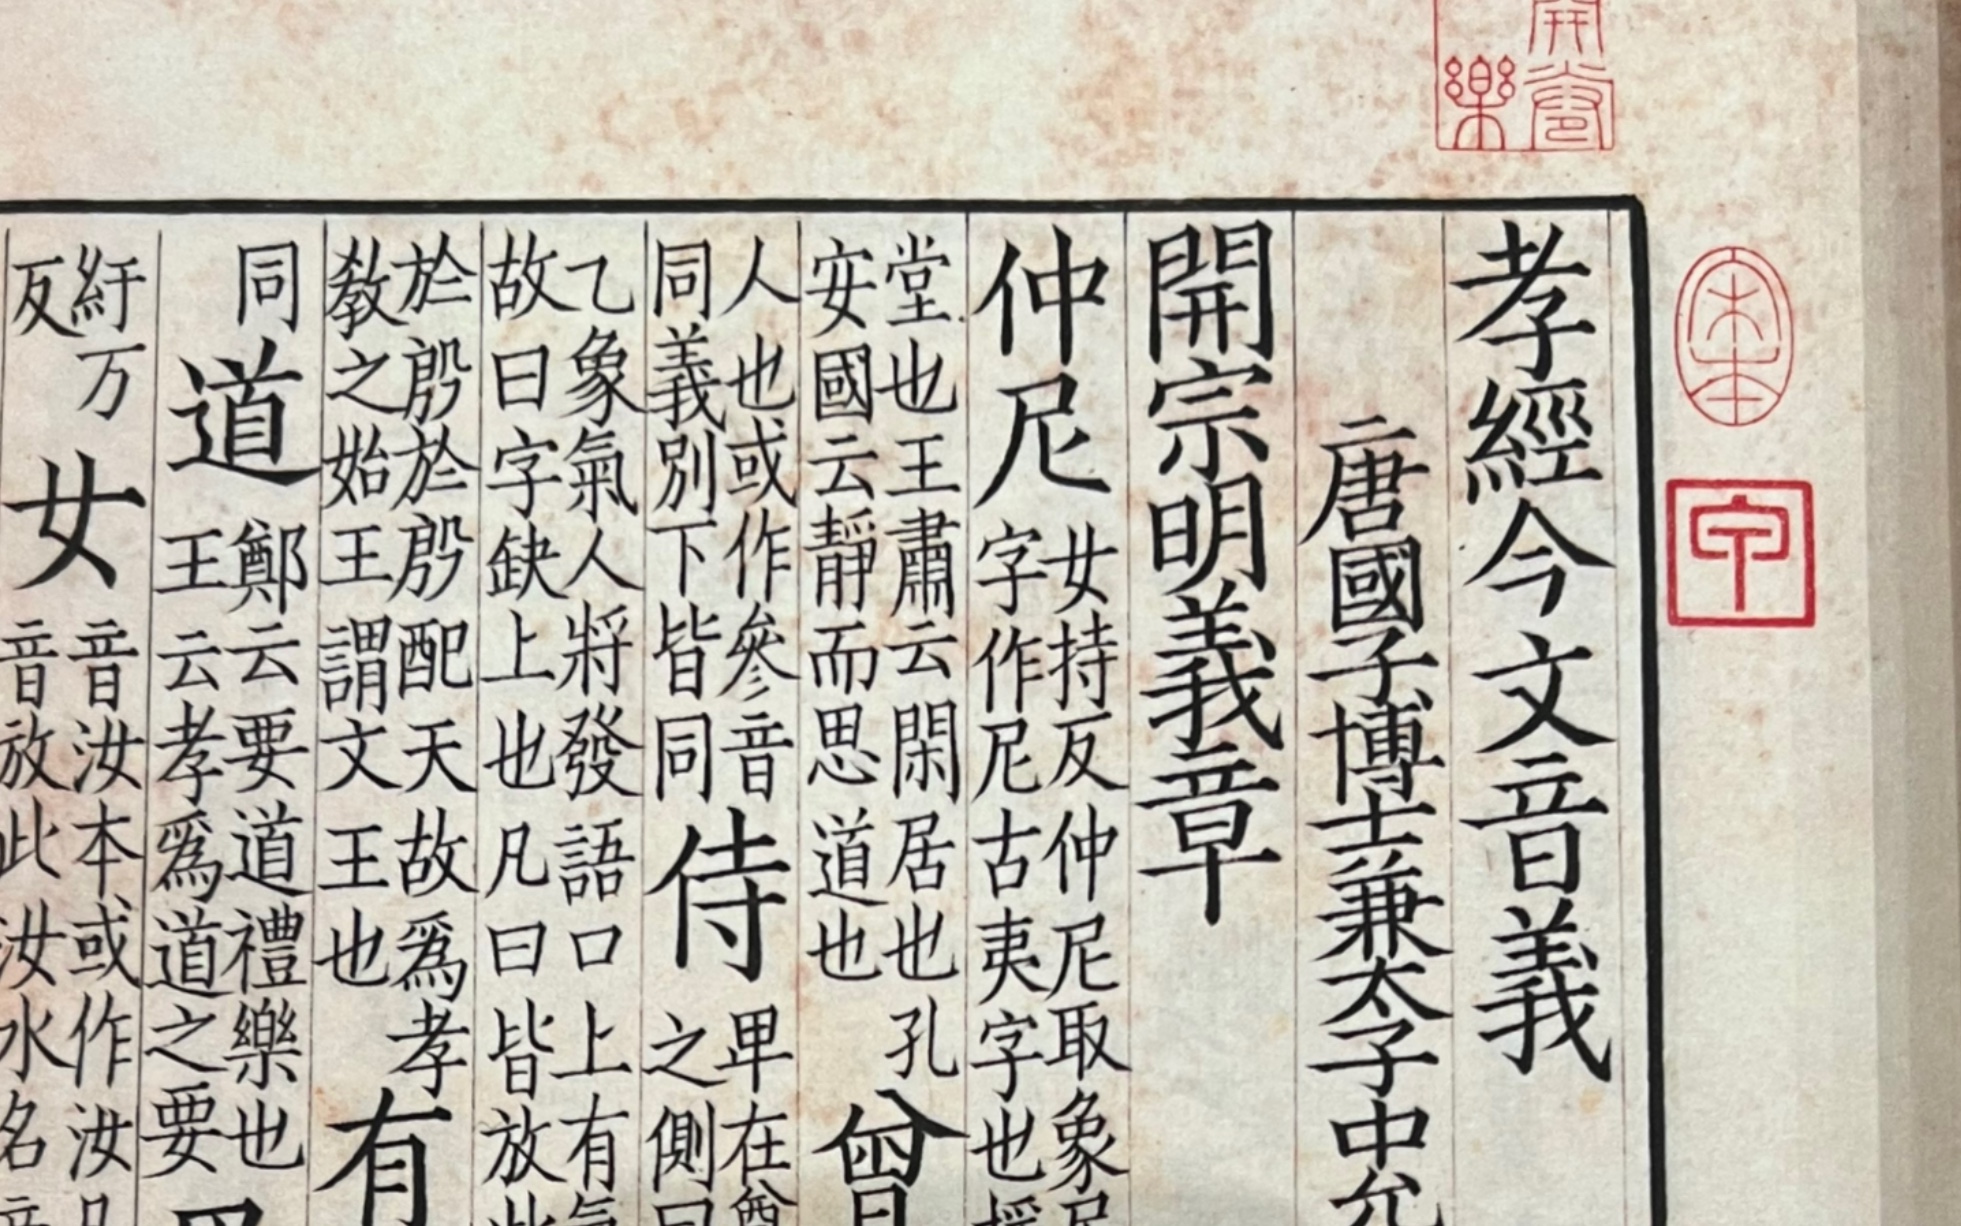 開卷
樂
宋本
甲
孝經今文音義
唐國子博士兼太子中允
開宗明義章
仲尼
女持反仲尼取象尼
字作尼古夷字也
堂也王肅云閑居也孔
安國云靜而思道也
曾
人也或作參音
同義別下皆同
侍
卑在尊
之側曰
乙象氣人將發語口上有氣
故曰字缺上也凡曰皆放此
於殷於殷配天故爲孝
教之始王謂文王也
有
同
道
鄭云要道禮樂也
王云孝爲道之要
紆万
反
女
音汝本或作汝
音放此汝水名